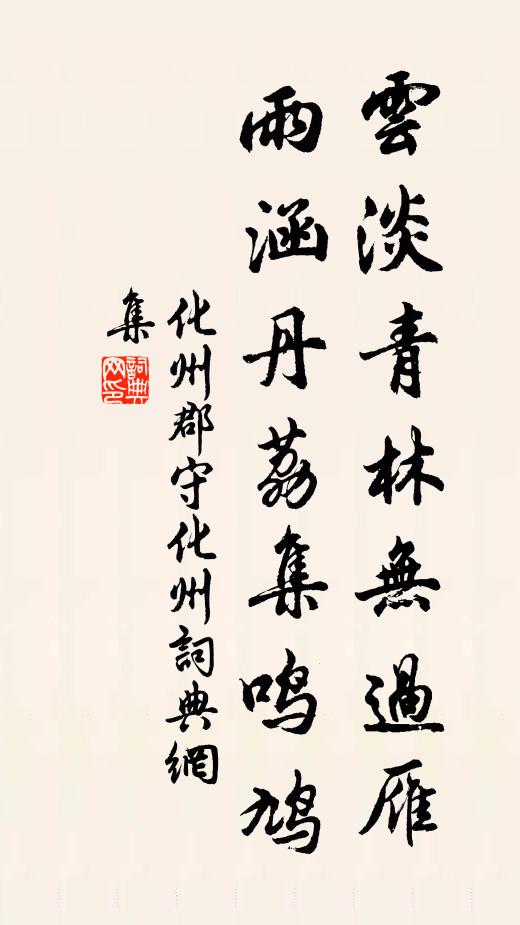 雲淡青林無過雁
雨涵丹荔集鳴鳩
化州郡守化州詞典網
集
詞典
网印